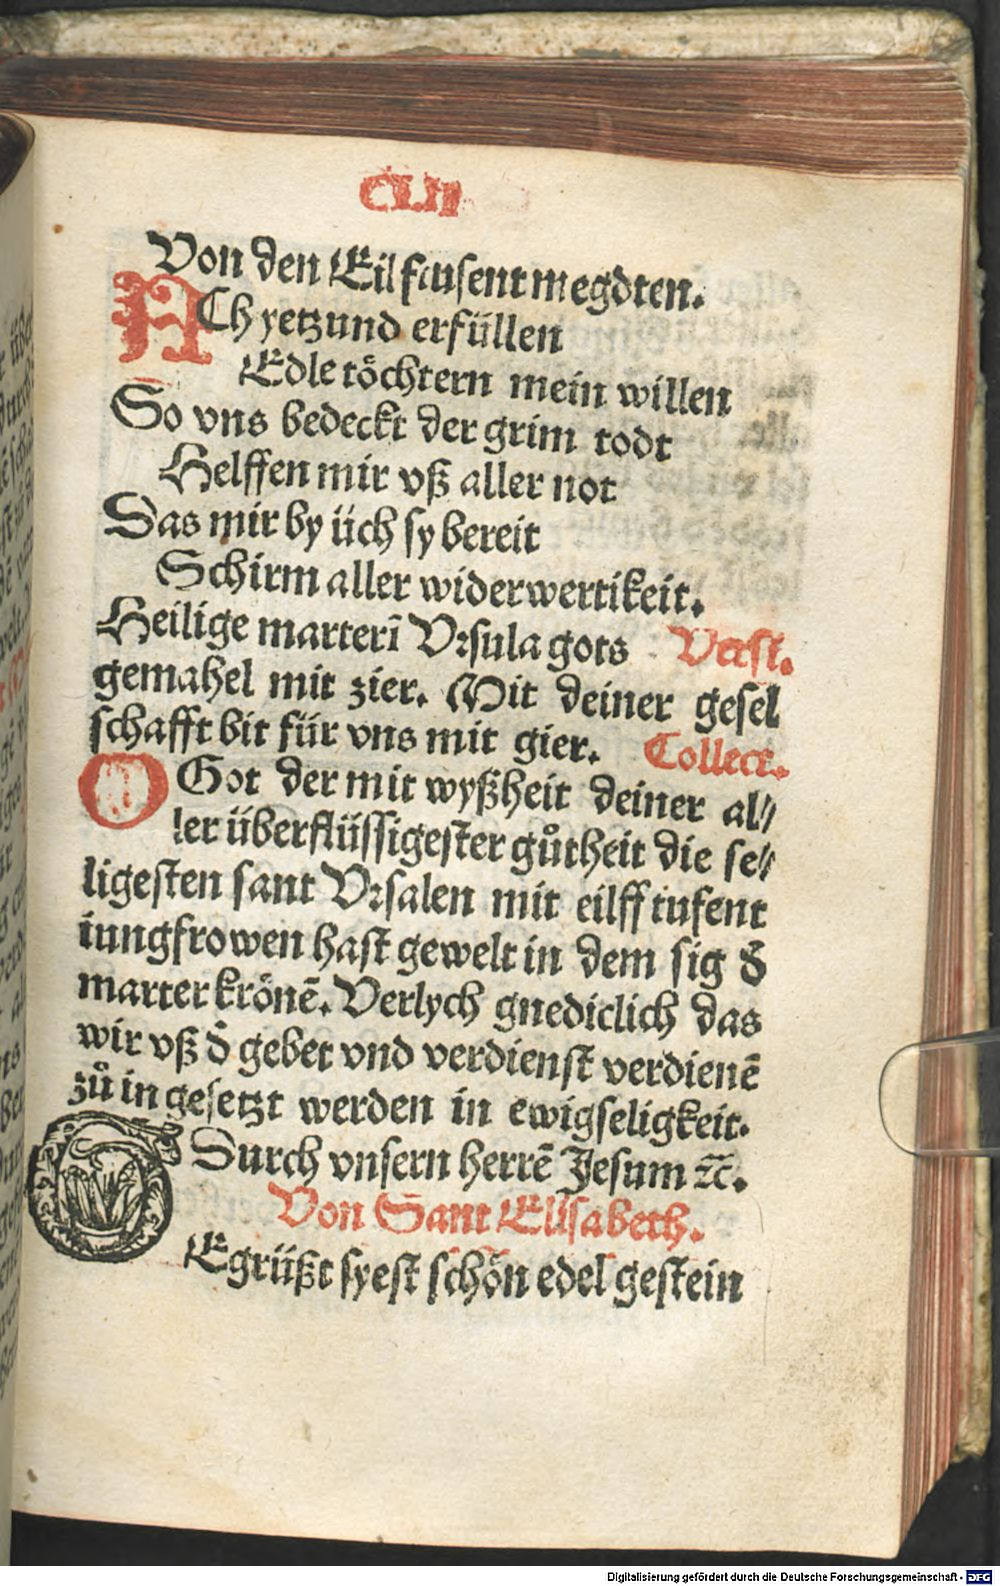 CLII
Von den Eilfausent megdten.
ACh yetzund erfüllen
Edle töchtern mein willen
So vns bedeckt der grim todt
Helffen mir vß aller not
Das mir by üch sy bereit
Schirm aller widerwertikeit.
Heilige marterī Vrsula gots Verst.
gemahel mit zier. Mit deiner gesel
schafft bit für vns mit gier. Collect.
O Got der mit wyßheit deiner al⸗
ler überflüssigester gůtheit die se⸗
ligesten sant Vrsalen mit eilff tusent
iungfrowen hast gewelt in dem sig d̄
marter krönē. Verlych gnediclich das
wir vß d̄ gebet vnd verdienst verdienē
zů in gesetzt werden in ewigseligkeit.
Durch vnsern herrē Jesum ⁊c̄.
Von Sant Elisabeth.
GEgrüßt syest schön edel gestein
Digitalisierung gefördert durch die Deutsche Forschungsgemeinschaft - DFG